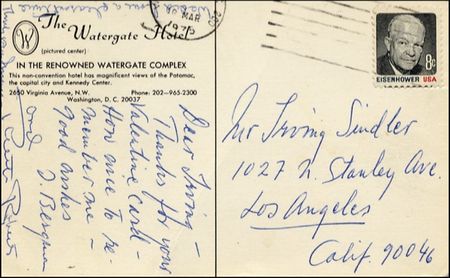 The
Watergate Hotel
(pictured center)
IN THE RENOWNED WATERGATE COMPLEX
This non-convention hotel has magnificent views of the Potomac,
the capital city and Kennedy Center.
2650 Virginia Avenue, N.W. Phone: 202—965-2300
Washington, D. C. 20037
Dear Irving —
Thanks for your
Valentine card —
How nice to re-
member me —
Good wishes
I. Bergman
and
MAR
1975
EISENHOWER USA
8c
Mr Irving Sindler
1027 N. Stanley Ave.
Los Angeles
Calif. 90046